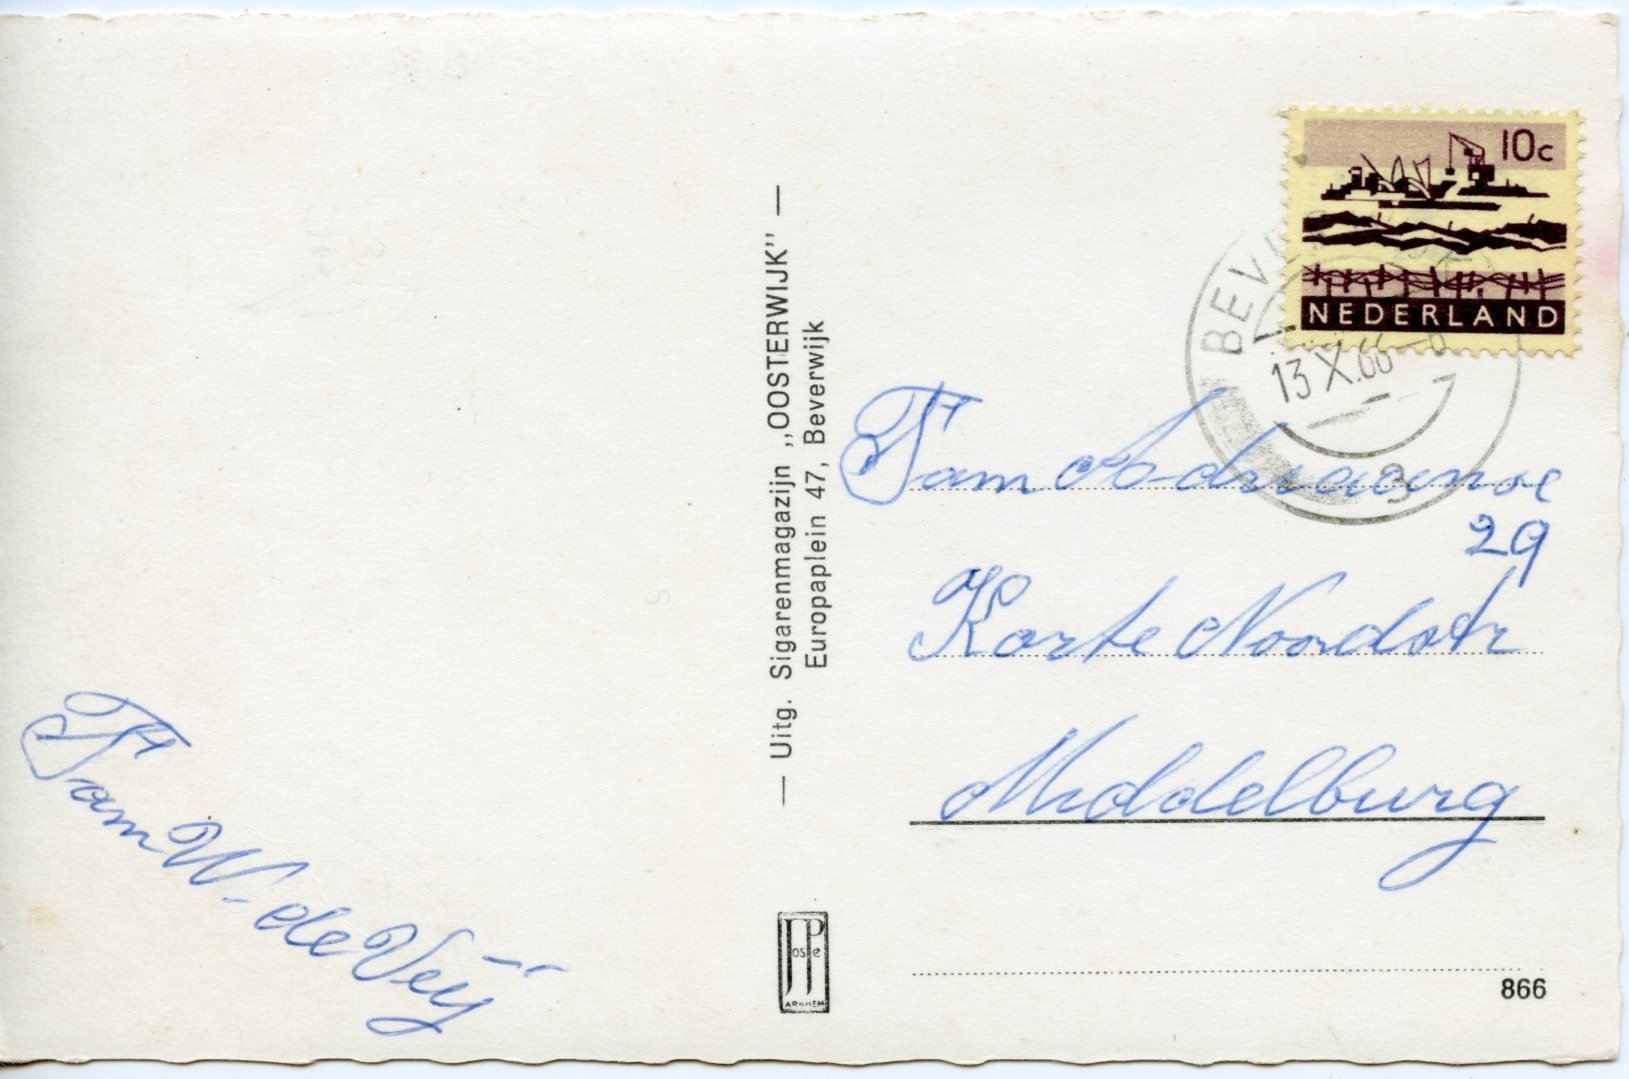 Fam W. de Veij
— Uitg. Sigarenmagazijn „OOSTERWIJK" —
Europaplein 47, Beverwijk
JP
oste
ARNHEM
10c
NEDERLAND
13 X.66
3
Fam Adriaanse
29
Korte Noordstr
Middelburg
866